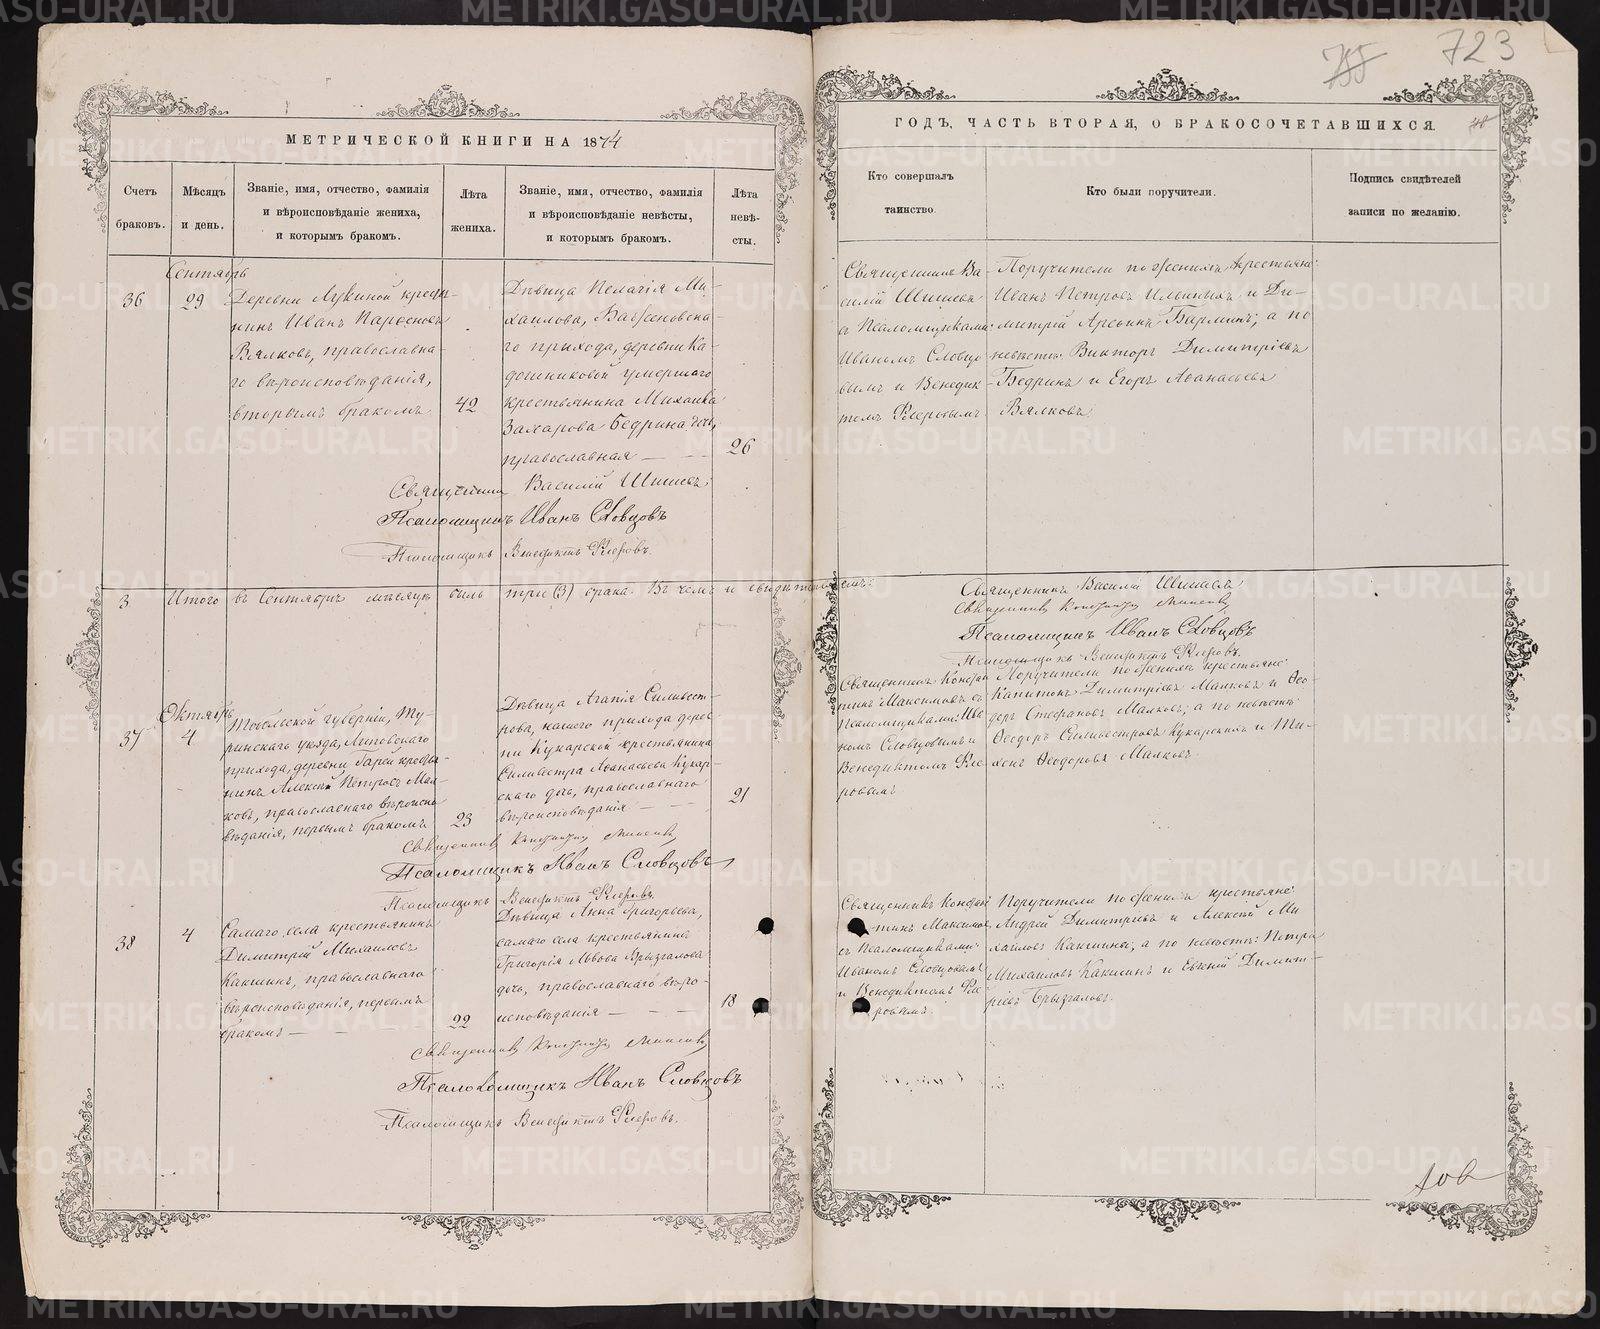 723
МЕТРИЧЕСКОЙ КНИГИ НА 1874
Счетъ браковъ.
Мѣсяцъ и день.
Званіе, имя, отчество, фамилія
и вѣроисповѣданіе жениха,
и которымъ бракомъ.
Лѣта жениха.
Званіе, имя, отчество, фамилія
и вѣроисповѣданіе невѣсты,
и которымъ бракомъ.
Лѣта невѣ-
сты.
Сентябрь
36
29
Деревни Лукиной крестья-
нинъ Иванъ
Вялковъ, православна-
го вѣроисповѣданія,
вторымъ бракомъ
42
Дѣвица Пелагія Ми-
хаилова,
го прихода, деревни Ка-
дошниковой умершаго
крестьянина Михаила
Захарова Бедрина дочь,
православная
26
Священникъ Василій Шишевъ
Псаломщикъ Иванъ Словцовъ
Псаломщикъ Венедиктъ Флеровъ.
3 Итого въ Сентябрѣ мѣсяцѣ было три (3) брака. Въ чемъ и свидѣтельствуемъ:
Октябрь
37
4
Тобольской губерніи, Ту-
ринскаго уѣзда, Липовскаго
прихода, деревни Гарей крестья-
нинъ Алексѣй Петровъ Мал-
ковъ, православнаго вѣроиспо-
вѣданія, первымъ бракомъ
23
Дѣвица Агапія Силивест-
рова, нашего прихода дерев-
ни Кукарской крестьянина
Силивестра Аѳанасьева Кукар-
скаго дочь, православнаго
вѣроисповѣданія
21
Священникъ Константинъ
Псаломщикъ Иванъ Словцовъ
Псаломщикъ Венедиктъ Флеровъ.
38
4
Самаго села крестьянинъ
Димитрій Михаиловъ
Какшинъ, православнаго
вѣроисповѣданія, первымъ
бракомъ
22
Дѣвица Анна Григорьева,
самаго села крестьянина
Григорія Львова Брызгалова
дочь, православнаго вѣро-
исповѣданія
18
Священникъ Константинъ
Псаломщикъ Иванъ Словцовъ
Псаломщикъ Венедиктъ Флеровъ.
ГОДЪ, ЧАСТЬ ВТОРАЯ, О БРАКОСОЧЕТАВШИХСЯ.
Кто совершалъ
таинство.
Кто были поручители.
Подпись свидѣтелей
записи по желанію.
Священникъ Ва-
силій Шишевъ
съ Псаломщиками:
Иваномъ Словцо-
вымъ и Венедик-
томъ Флеровымъ
Поручители по женихѣ крестьяне:
Иванъ Петровъ Ильиныхъ и Ди-
митрій Барминъ; а по
невѣстѣ: Викторъ Димитріевъ
Бедринъ и Егоръ Аѳанасьевъ
Вялковъ
Священникъ Василій Шишевъ
Священникъ Константинъ
Псаломщикъ Иванъ Словцовъ
Псаломщикъ Венедиктъ Флеровъ.
Священникъ Констан-
тинъ Максимовъ съ
Псаломщиками: Ива-
номъ Словцовымъ и
Венедиктомъ Фле-
ровымъ
Поручители по женихѣ крестьяне:
Капитонъ Димитріевъ Малковъ и Ѳео-
доръ Стефановъ Малковъ; а по невѣстѣ
Ѳеодоръ Силивестровъ Кукарскихъ и Ти-
хонъ Ѳеодоровъ Малковъ.
Священникъ Констан-
тинъ Максимовъ
съ Псаломщиками:
Иваномъ Словцовымъ
и Венедиктомъ Фле-
ровымъ.
Поручители по женихѣ крестьяне:
Андрей Димитріевъ и Алексѣй Ми-
хайловъ Какшины; а по невѣстѣ: Петръ
Михаиловъ Какшинъ и Евгеній Димит-
ріевъ Брызгаловъ.
METRIKI.GASO-URAL.RU